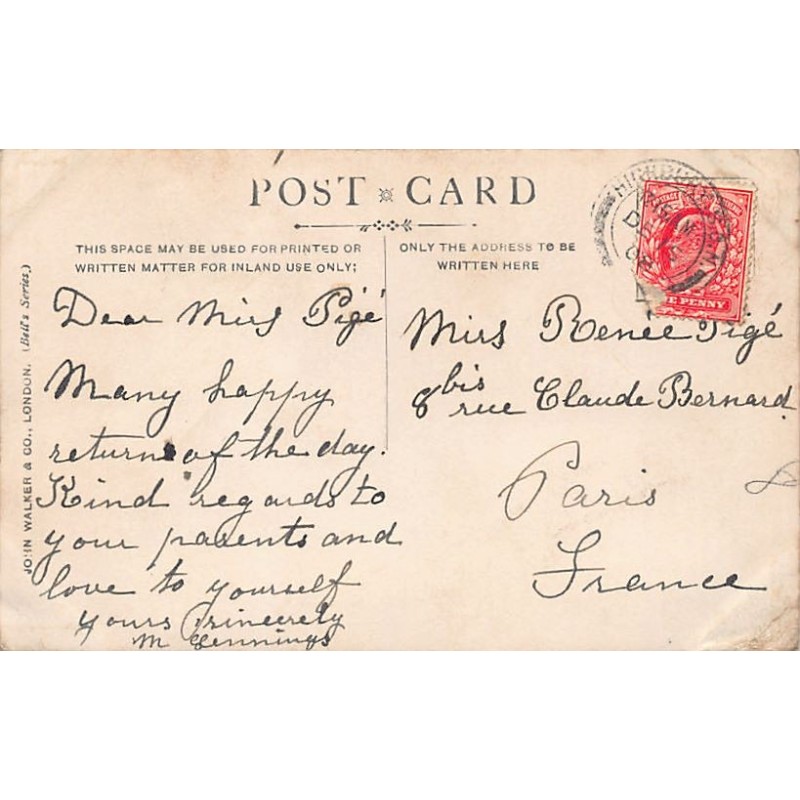 POST CARD
THIS SPACE MAY BE USED FOR PRINTED OR
WRITTEN MATTER FOR INLAND USE ONLY;
ONLY THE ADDRESS TO BE
WRITTEN HERE
JOHN WALKER & CO., LONDON. (Bell's Series.)
Dear Miss Pigé
Many happy
returns of the day.
Kind regards to
your parents and
love to yourself
yours sincerely
M Jennings
Miss Renée Pigé
8 bis rue Claude Bernard
Paris
France
PENNY